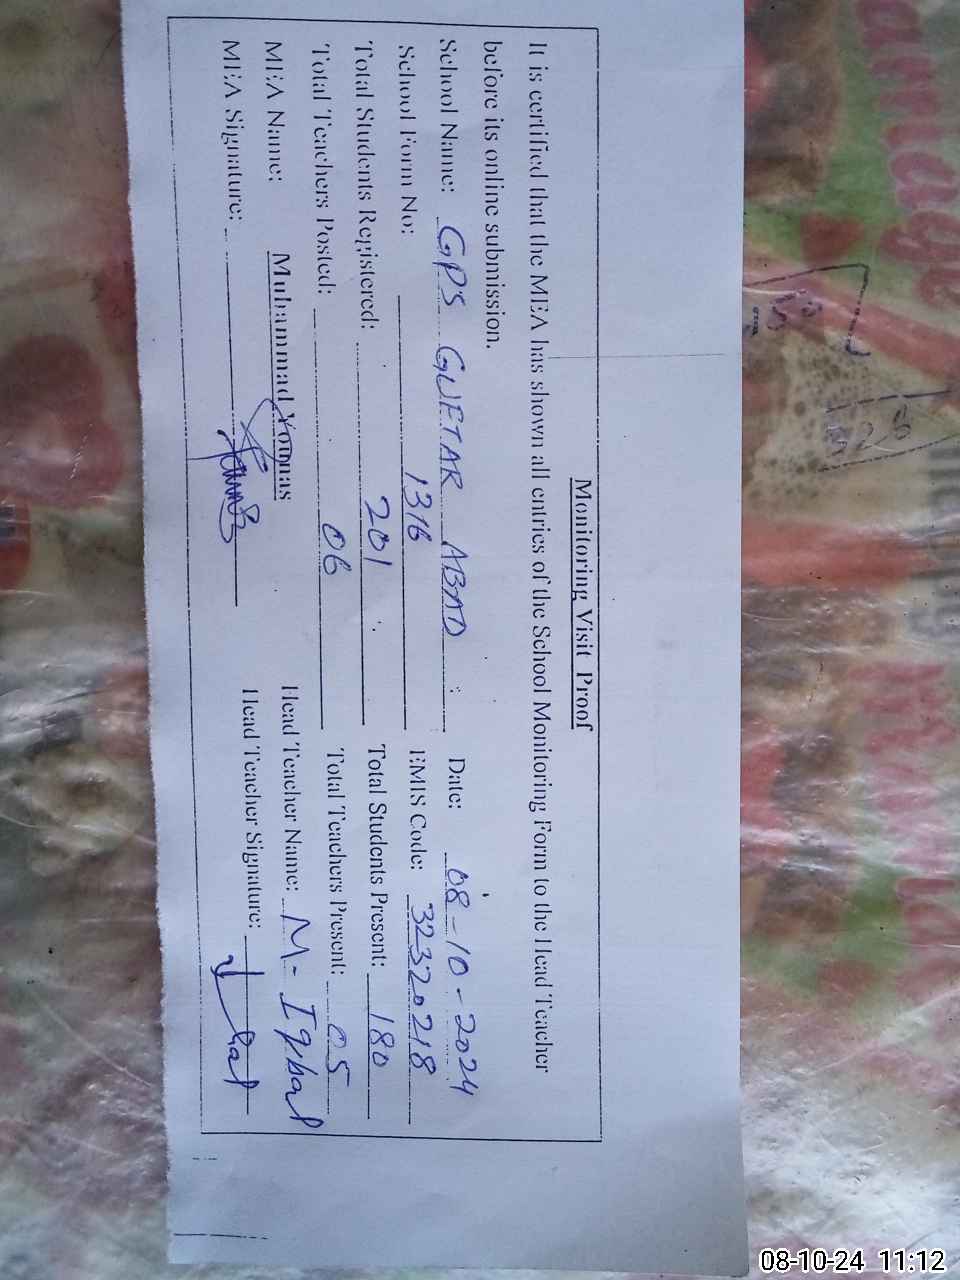 Monitoring Visit Proof
It is certified that the MEA has shown all entries of the School Monitoring Form to the Head Teacher
before its online submission.
School Name: GPS GUETAR ABAD Date: 08-10-2024
School Form No: 1316 EMIS Code: 32320218
Total Students Registered: 201 Total Students Present: 180
Total Teachers Posted: 06 Total Teachers Present: 05
MEA Name: Muhammad Younas Head Teacher Name: M- Iqbal
MEA Signature: Head Teacher Signature:
08-10-24 11:12